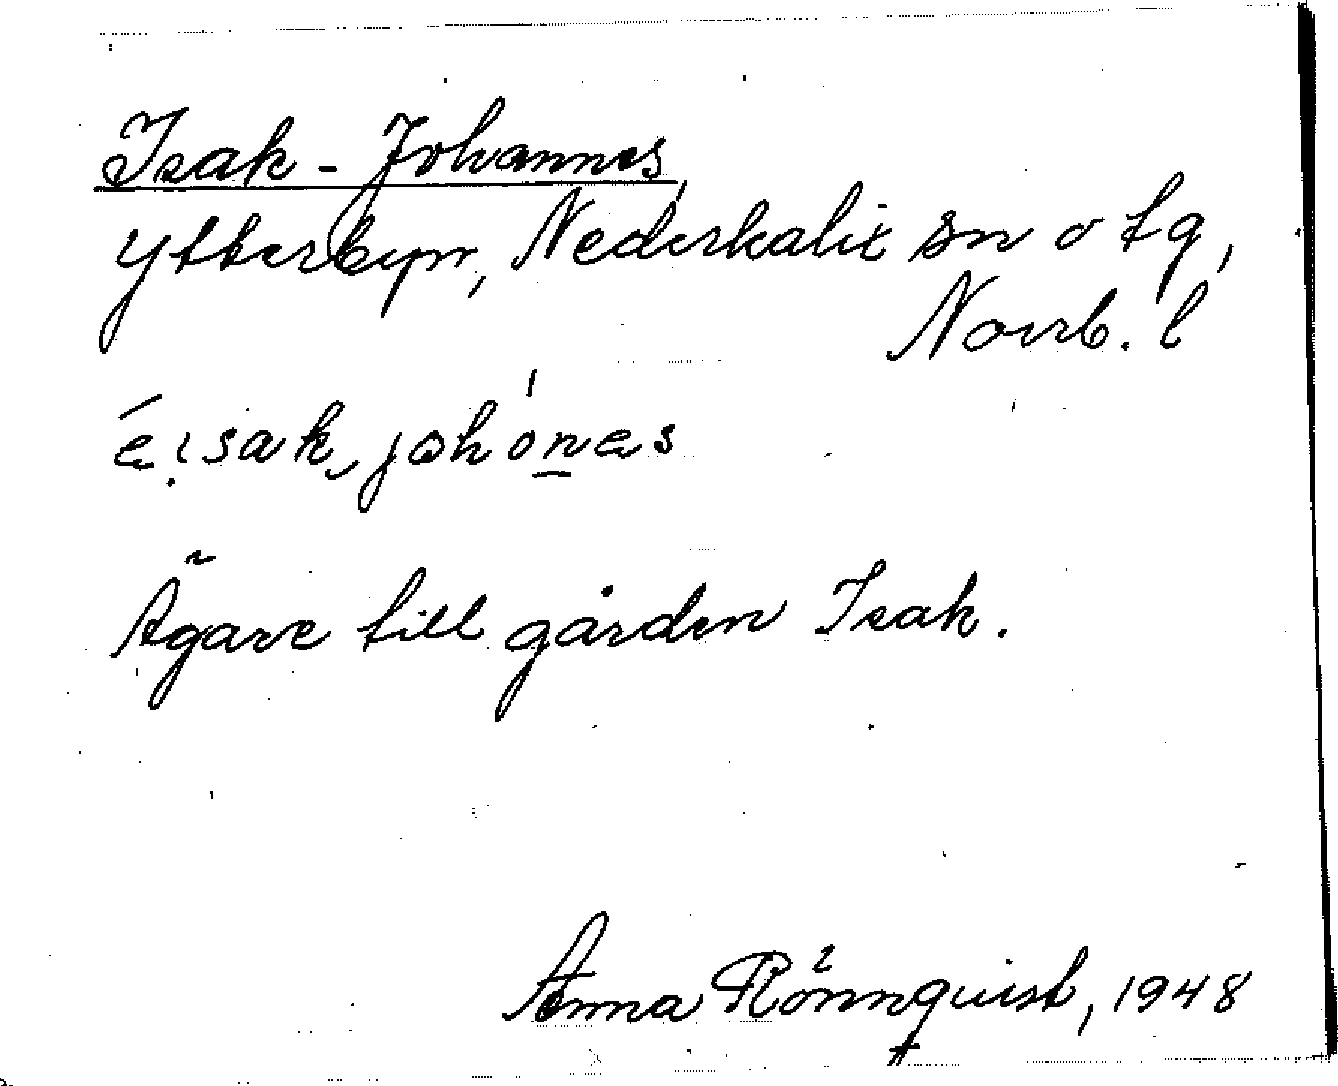 Isak-Johannes
Ytterbyn, Nederkalix sn o tg,
Norrb. l
é̱ịsak‿johónas
Ägare till gården Isak.
Anna Rönnquist, 1948